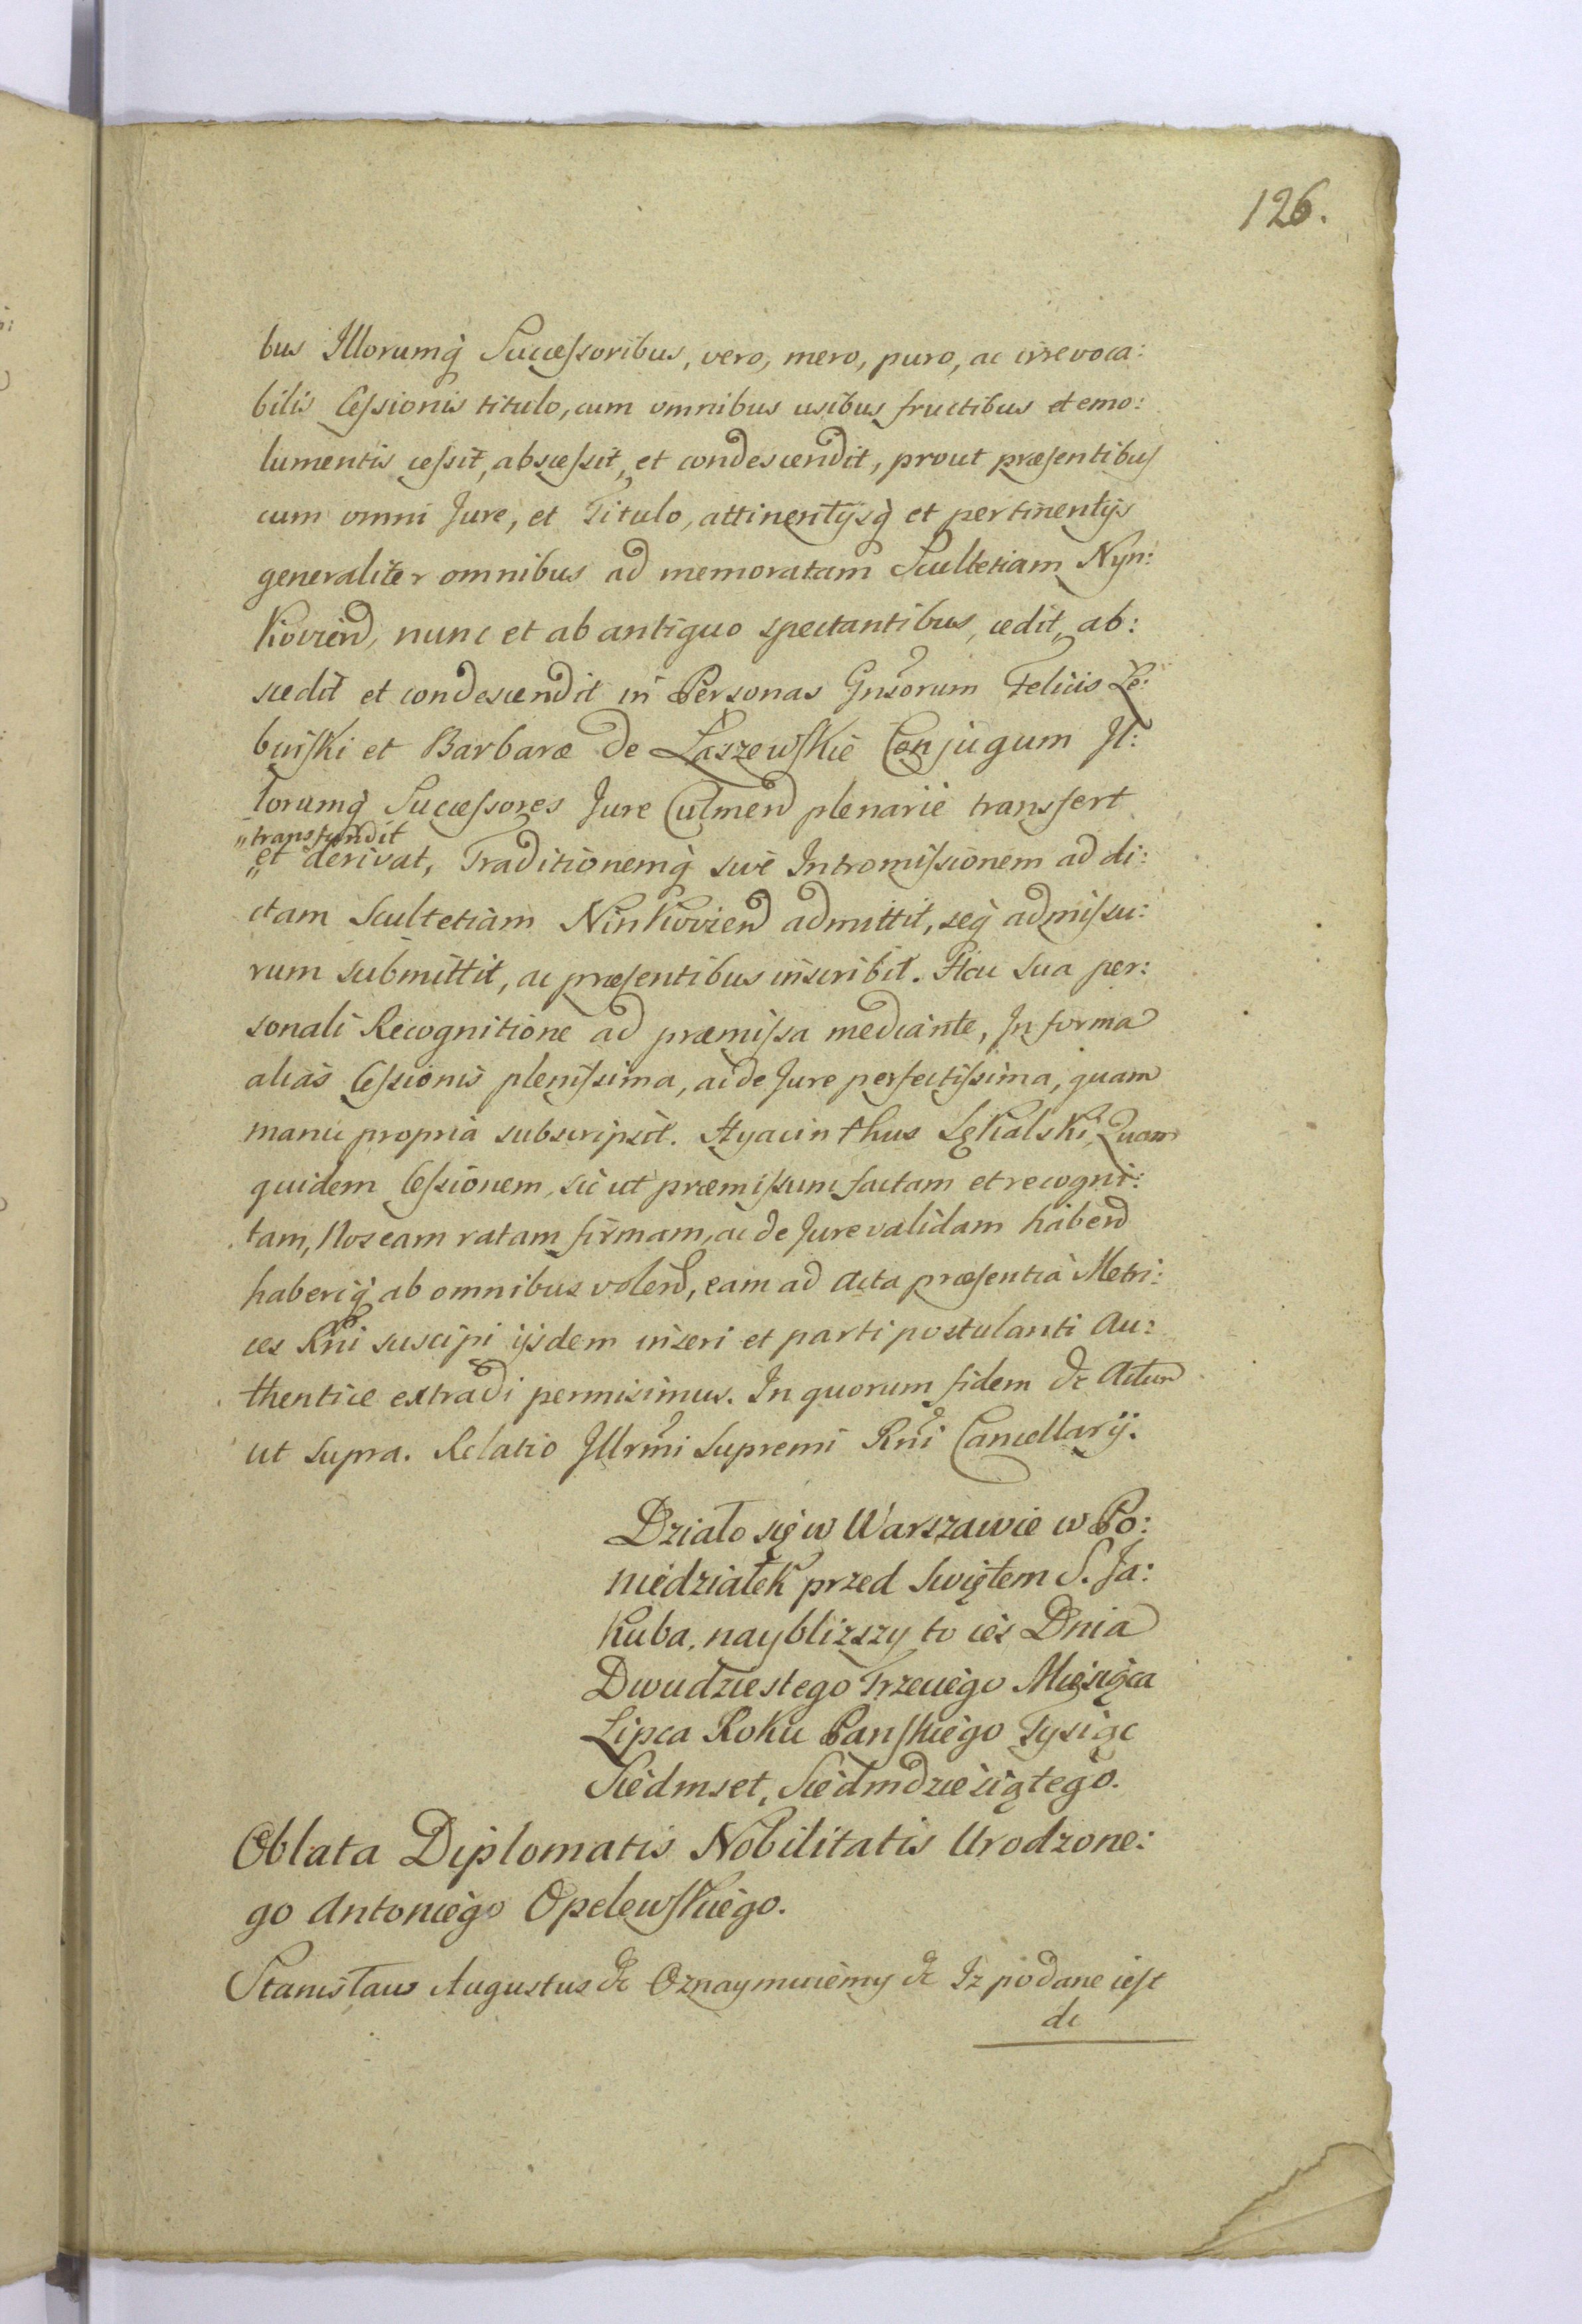 126.
bus Illorumq̀ Succeſsoribus, vero, mero, puro, ac irrevoca:
bilis Ceſsionis titulo, cum omnibus usibus fructibus et emo:
lumentis ceſsit, absceſsit, et condescendit, prout præſentibus
cum omni Jure, et Titulo, attinentijsq̀ et pertinentijs
generaliter omnibus ad memoratam Scultetiam Nyn:
kovien̄, nunc et ab antiquo spectantibus, cedit, ab:
scedit et condescendit in Personas Gnsorum Felicis Le:
biński et Barbaræ de Łaszewſkie Conjugum Il:
lorumq̀ Succeſsores Jure Culmen̄ plenarie transfert
„transfundit
„et derivat, Traditionemq̀ sive Intromiſsionem ad di:
ctam Scultetiam Ninkovien̄ admittit, seq̀ admiſsu:
rum submittit, ac præſentibus inscribit. Hac sua per:
sonali Recognitione ad præmiſsa mediante, In forma
alias Ceſsionis pleniſsima, ac de Jure perfectiſsima, quam
manu propria subscripsit. Hyacinthus Łękialski, Quam
quidem Ceſsionem, sic ut præmiſsum factam et recogni:
tam, Nos eam ratam firmam, ac de Jure validam haben̄
haberiq̀ ab omnibus volen̄, eam ad Acta præſentia Metri:
ces Rni suscipi ijsdem inseri et parti postulanti Au:
thentice extradi permisimus. In quorum fidem &c Actum
ut supra. Relatio Illrmi Supremi Rni Cancellarij.
Działo się w Warszawie w Po:
niedziałek przed Swiętem S. Ja:
kuba, nayblizszy to ies Dnia
Dwudziestego Trzeciego Miesiąca
Lipca Roku Panſkiego Tysiąc
Siedmset, Siedmdziesiątego.
Oblata Diplomatis Nobilitatis Urodzone:
go Antoniego Opelewſkiego.
Stanisław Augustus &c Oznaymuiemy &c Iz podane ieſt
do